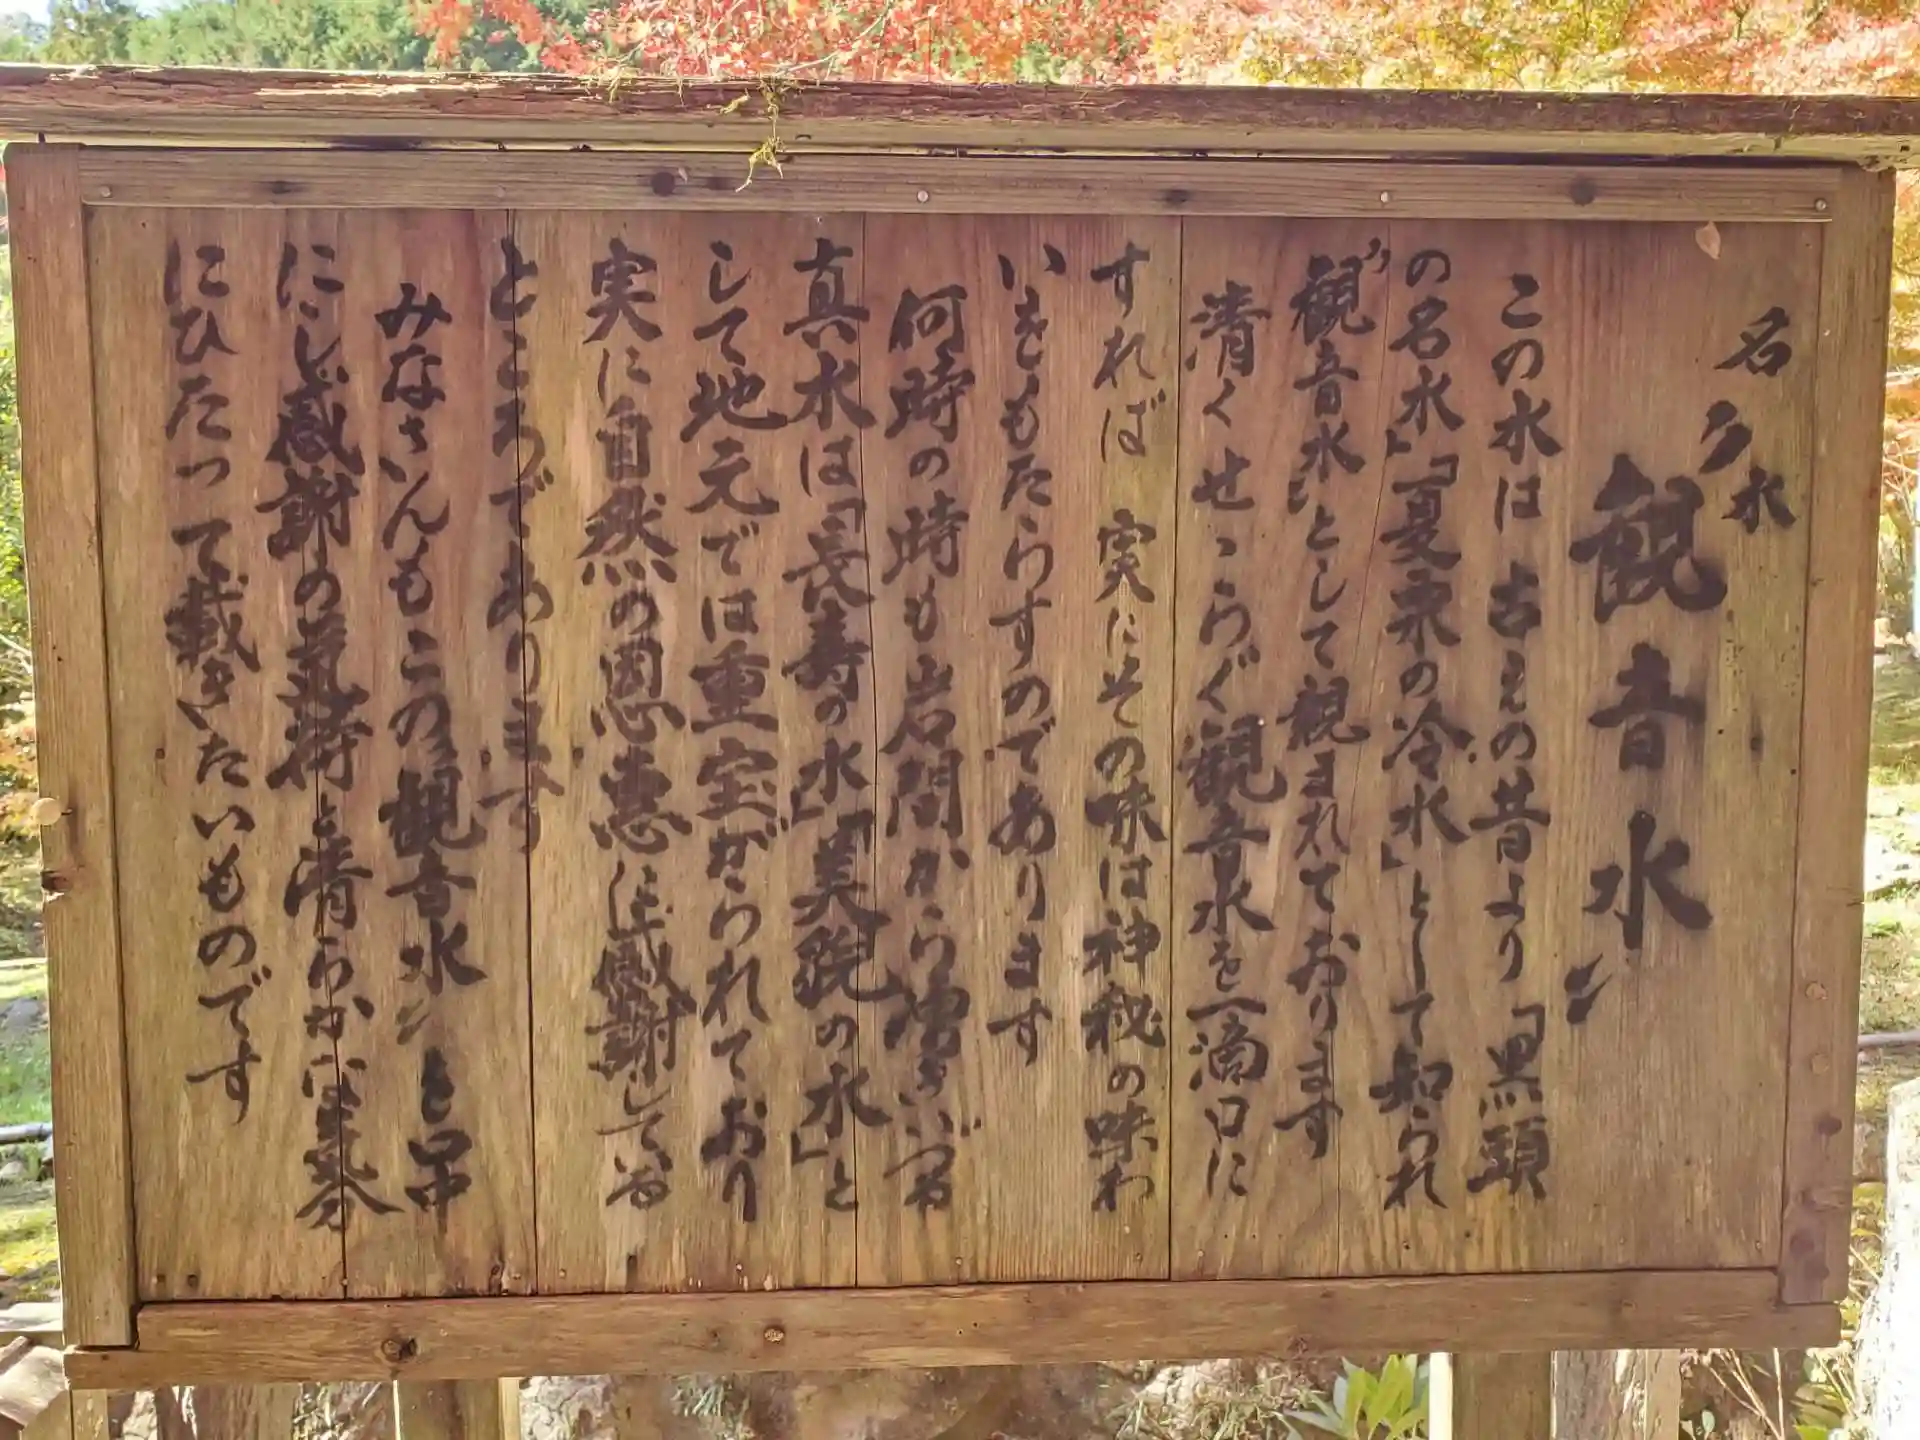 名水
〝観音水〟
この水は古えの昔より「黒頭
の名水」「夏泉の冷水」として知られ
〝観音水〟として親まれております
清くせゝらぐ観音水を一滴口に
すれば 実にその味は神秘の味わ
いをもたらすのであります
何時の時も岩間から湧きいづる
真水は「長寿の水」「美貌の水」と
して地元では重宝がられており
実に自然の恩恵に感謝している
ところであります
みなさんもこの〝観音水〟を早
にじ感謝の気持と清らかな気分
にひたって戴きたいものです